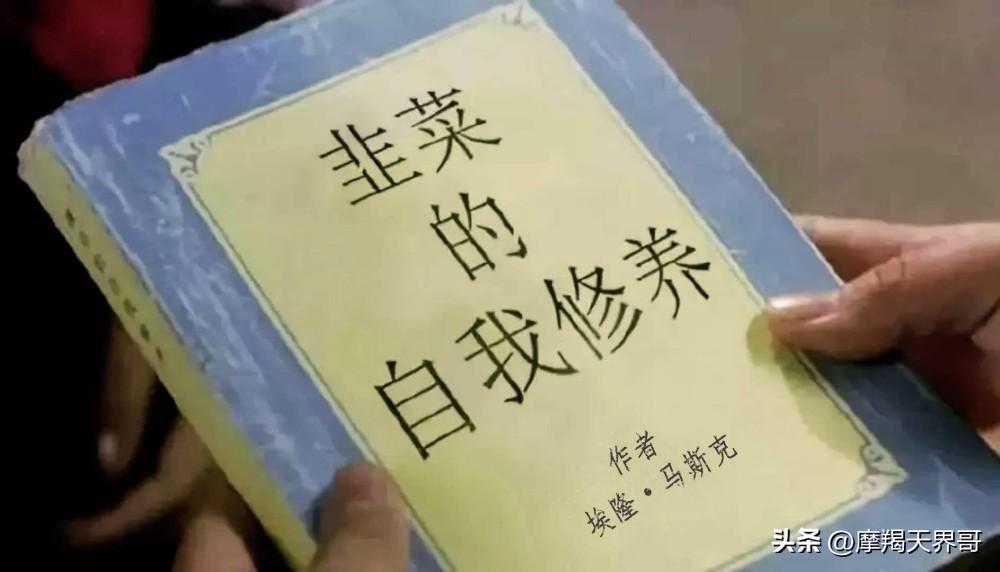 韭菜
的
自我修养
作者
埃隆·马斯克
头条 @摩羯天界哥